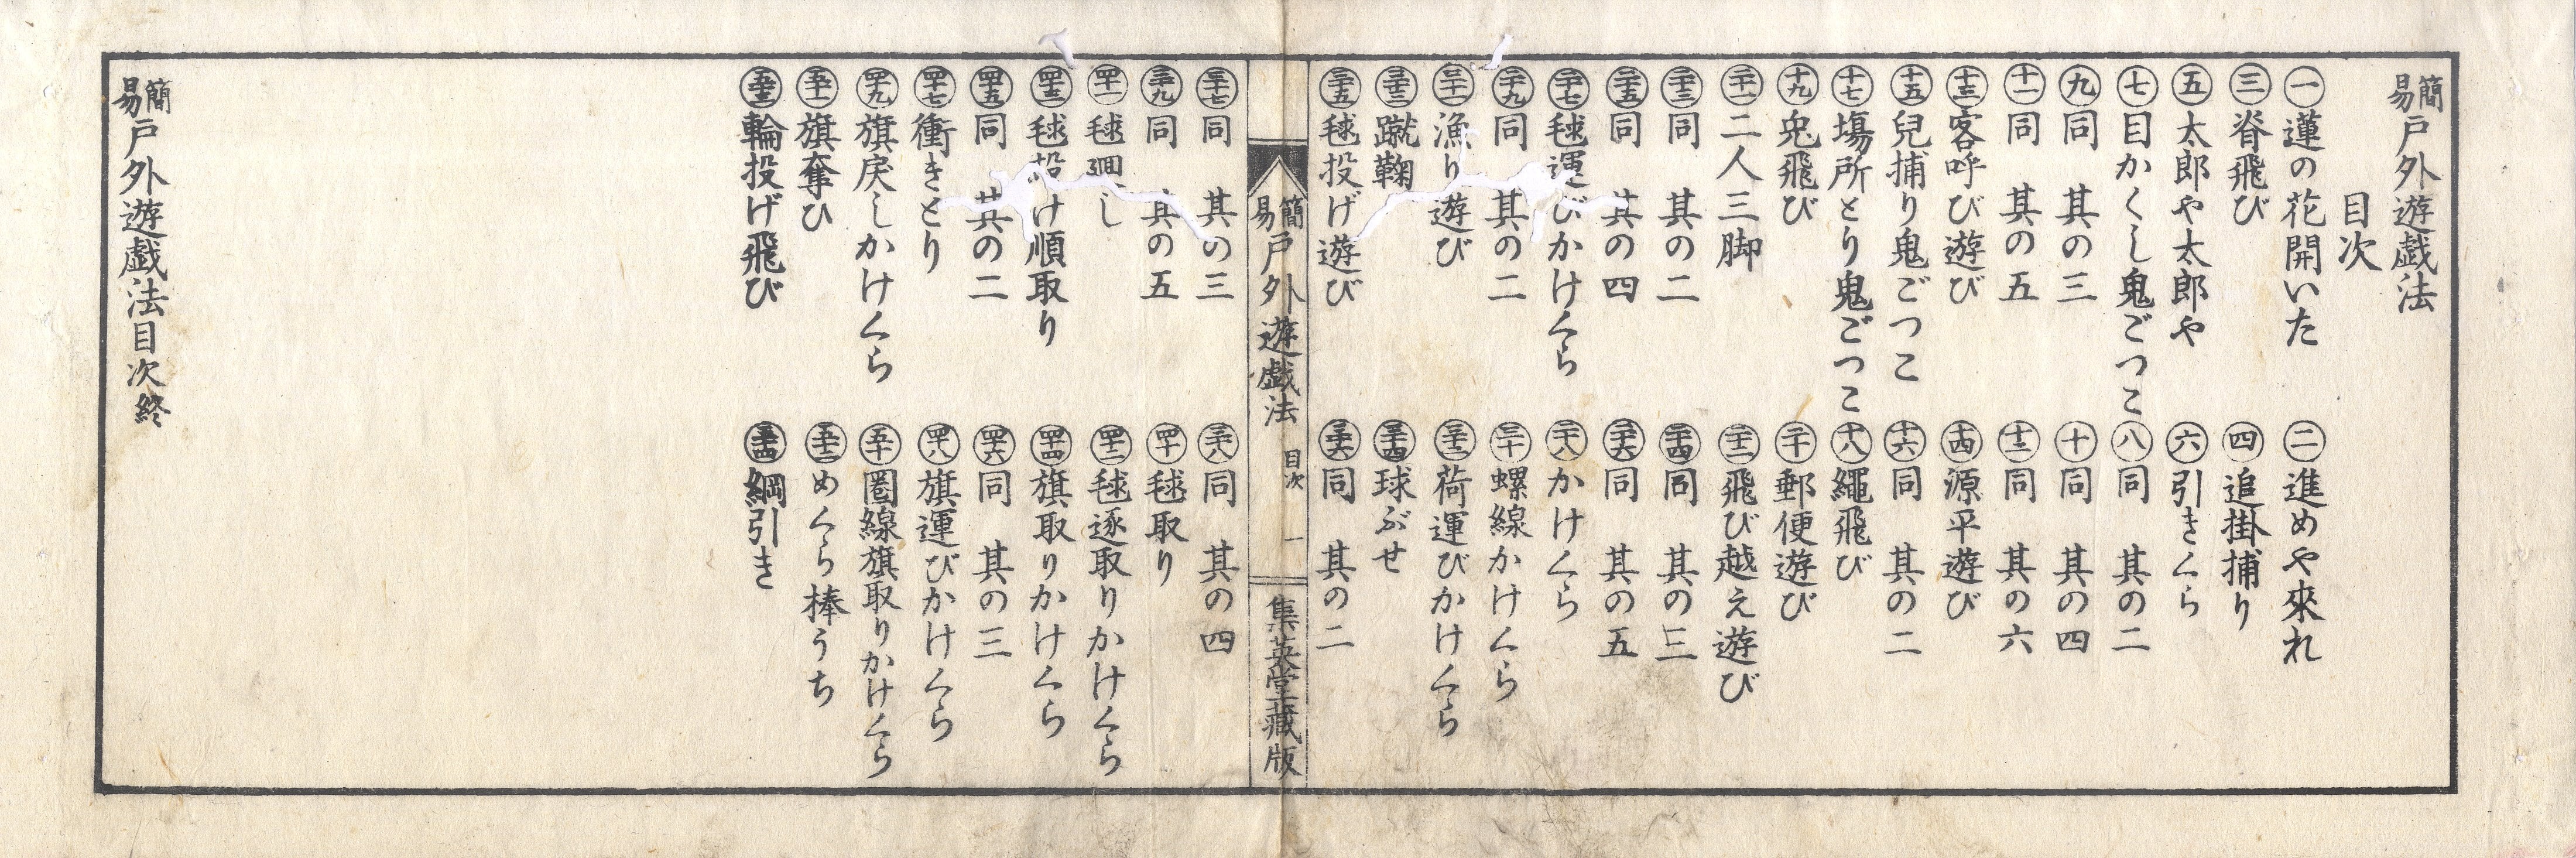 簡易戸外遊戯法
目次
㊀蓮の花開いた　㊁進めや來れ
㊂脊飛び　㊃追掛捕り
㊄太郎や太郎や　㊅引きくら
㊆目かくし鬼ごつこ　㊇同　其の二
㊈同　其の三　㊉同　其の四
十一 同　其の五　十二 同　其の六
十三 客呼び遊び　十四 源平遊び
十五 兒捕り鬼ごつこ　十六 同　其の二
十七 塲所とり鬼ごつこ　十八 繩飛び
十九 兎飛び　二十 郵便遊び
二十一 二人三脚　二十二 飛び越え遊び
二十三 同　其の二　二十四 同　其の三
二十五 同　其の四　二十六 同　其の五
二十七 毬運びかけくら　二十八 かけくら
二十九 同　其の二　三十 螺線かけくら
三十一 漁り遊び　三十二 荷運びかけくら
三十三 蹴鞠　三十四 球ぶせ
三十五 毬投げ遊び　三十六 同　其の二
簡易戸外遊戯法　目次　一　集英堂藏版
三十七 同　其の三　三十八 同　其の四
三十九 同　其の五　四十 毬取り
四十一 毬廻し　四十二 毬逐取りかけくら
四十三 毬投け順取り　四十四 旗取りかけくら
四十五 同　其の二　四十六 同　其の三
四十七 衝きとり　四十八 旗運びかけくら
四十九 旗戻しかけくら　五十 圏線旗取りかけくら
五十一 旗奪ひ　五十二 めくら棒うち
五十三 輪投げ飛び　五十四 綱引き
簡易戸外遊戯法目次終